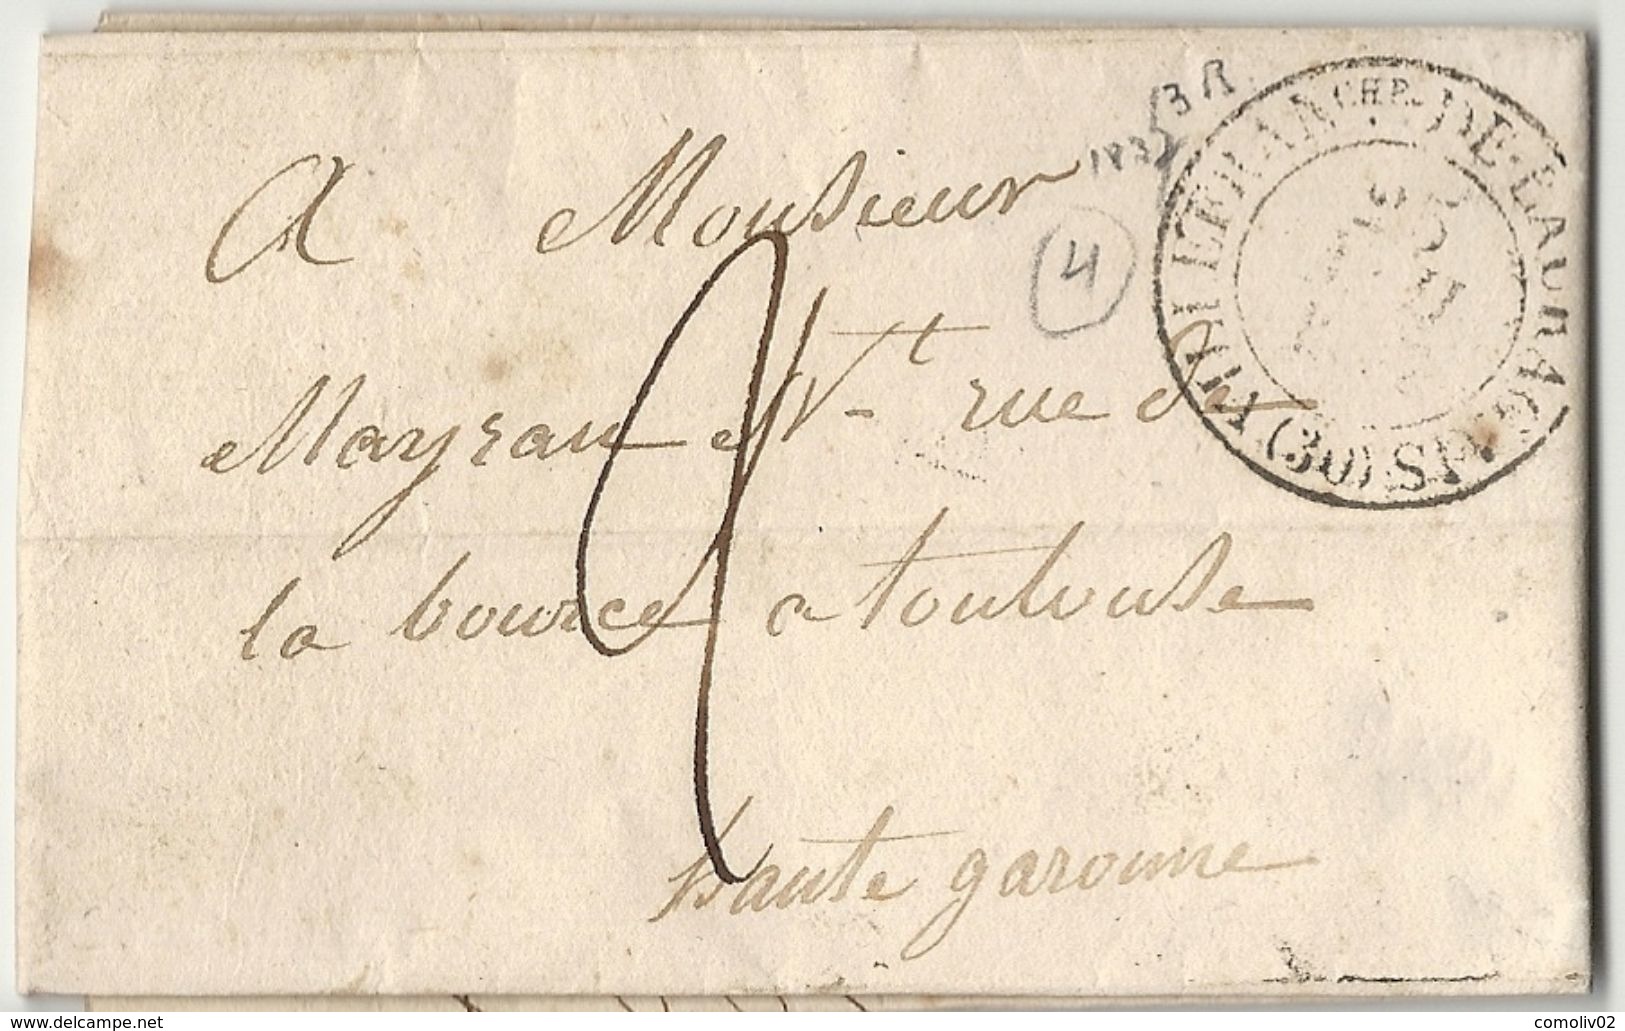 A Monsieur
Mayran Nt rue de
la bource a toulouse
haute garonne
2
4
VILLEFRANCHE-DE-LAURAGAIS (30)
delcampe.net
comoliv02